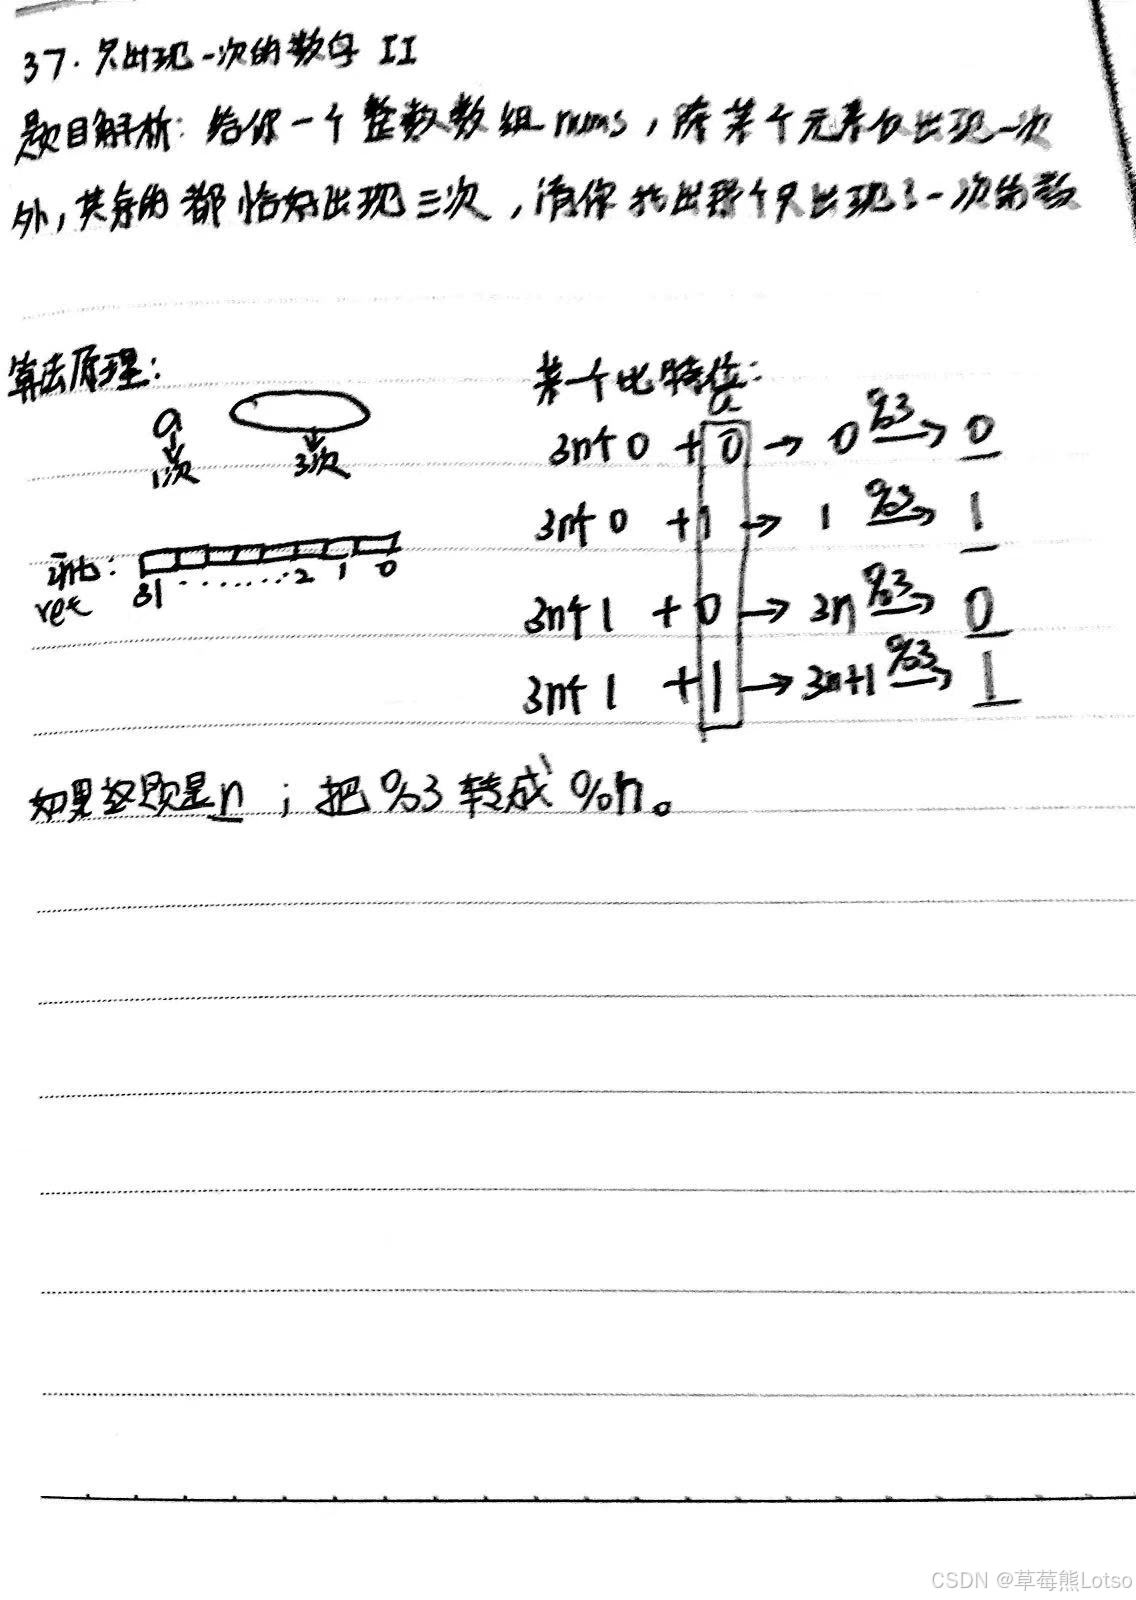 37. 只出现一次的数字 II
题目解析: 给你一个整数数组 nums, 除某个元素仅出现一次
外, 其余的都恰好出现三次, 请你找出那个只出现了一次的数
算法原理:
a
1次
3次
int:
ret
31 ········ 2 1 0
某一个比特位:
a
3n个0 + 0 → 0 %3→ 0
3n个0 + 1 → 1 %3→ 1
3n个1 + 0 → 3n %3→ 0
3n个1 + 1 → 3n+1 %3→ 1
如果这题是n ; 把%3转成%n。
CSDN @草莓熊Lotso